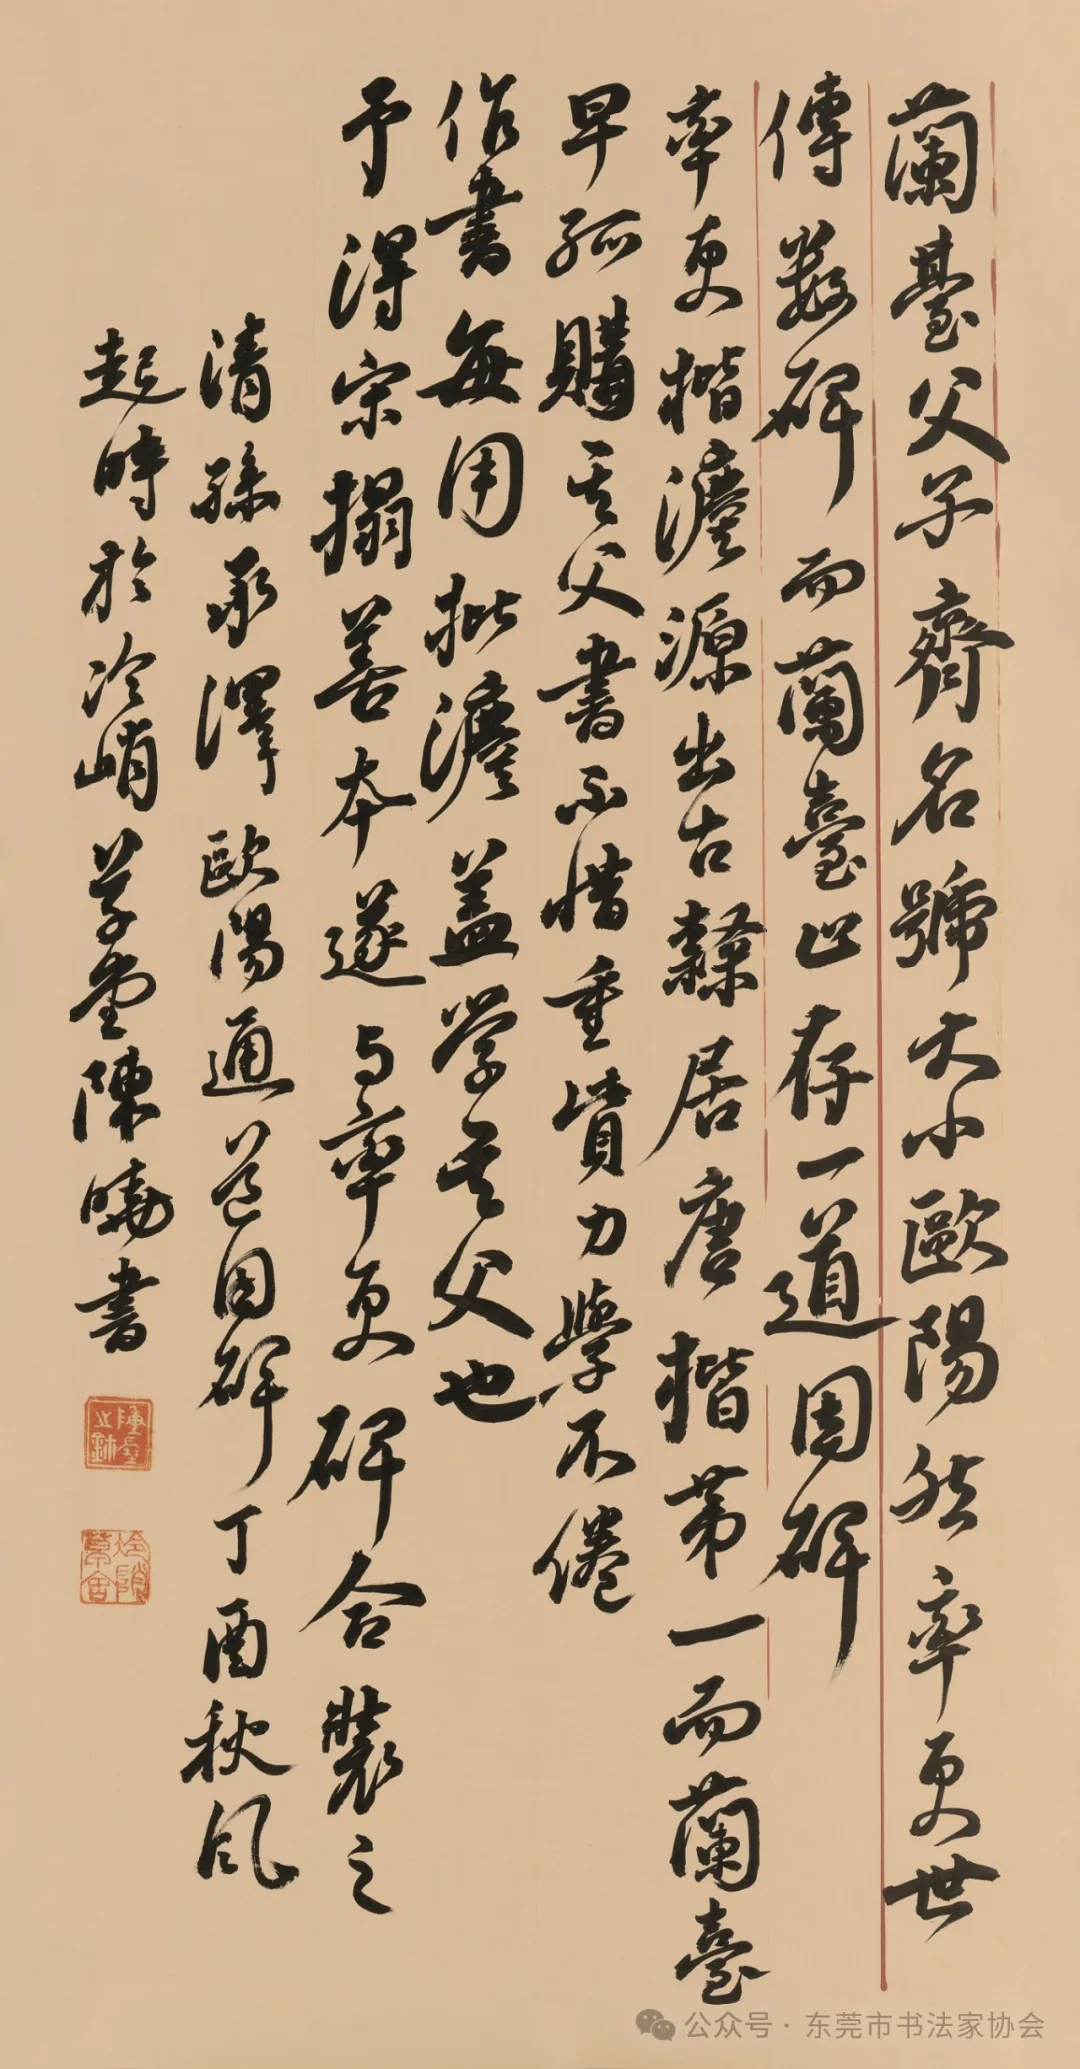 蘭臺父子齊名號大小歐陽然率更世
傳數碑而蘭臺止存一道因碑
率更楷法源出古隸居唐楷第一而蘭臺
早孤購其父書不惜重貲力學不倦
作書每用批法蓋学其父也
予得宋搨善本遂与率更碑合裝之
清孫承澤歐陽通道因碑丁酉秋风
起時於冷峭草堂陳曉書
公众号·东莞市书法家协会